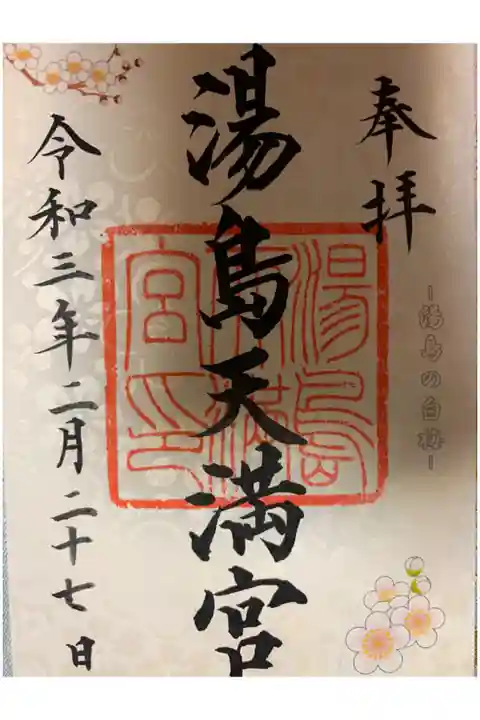 奉拝
ー湯島の白梅ー
湯島天満宮
湯島
天満
宮印
令和三年二月二十七日